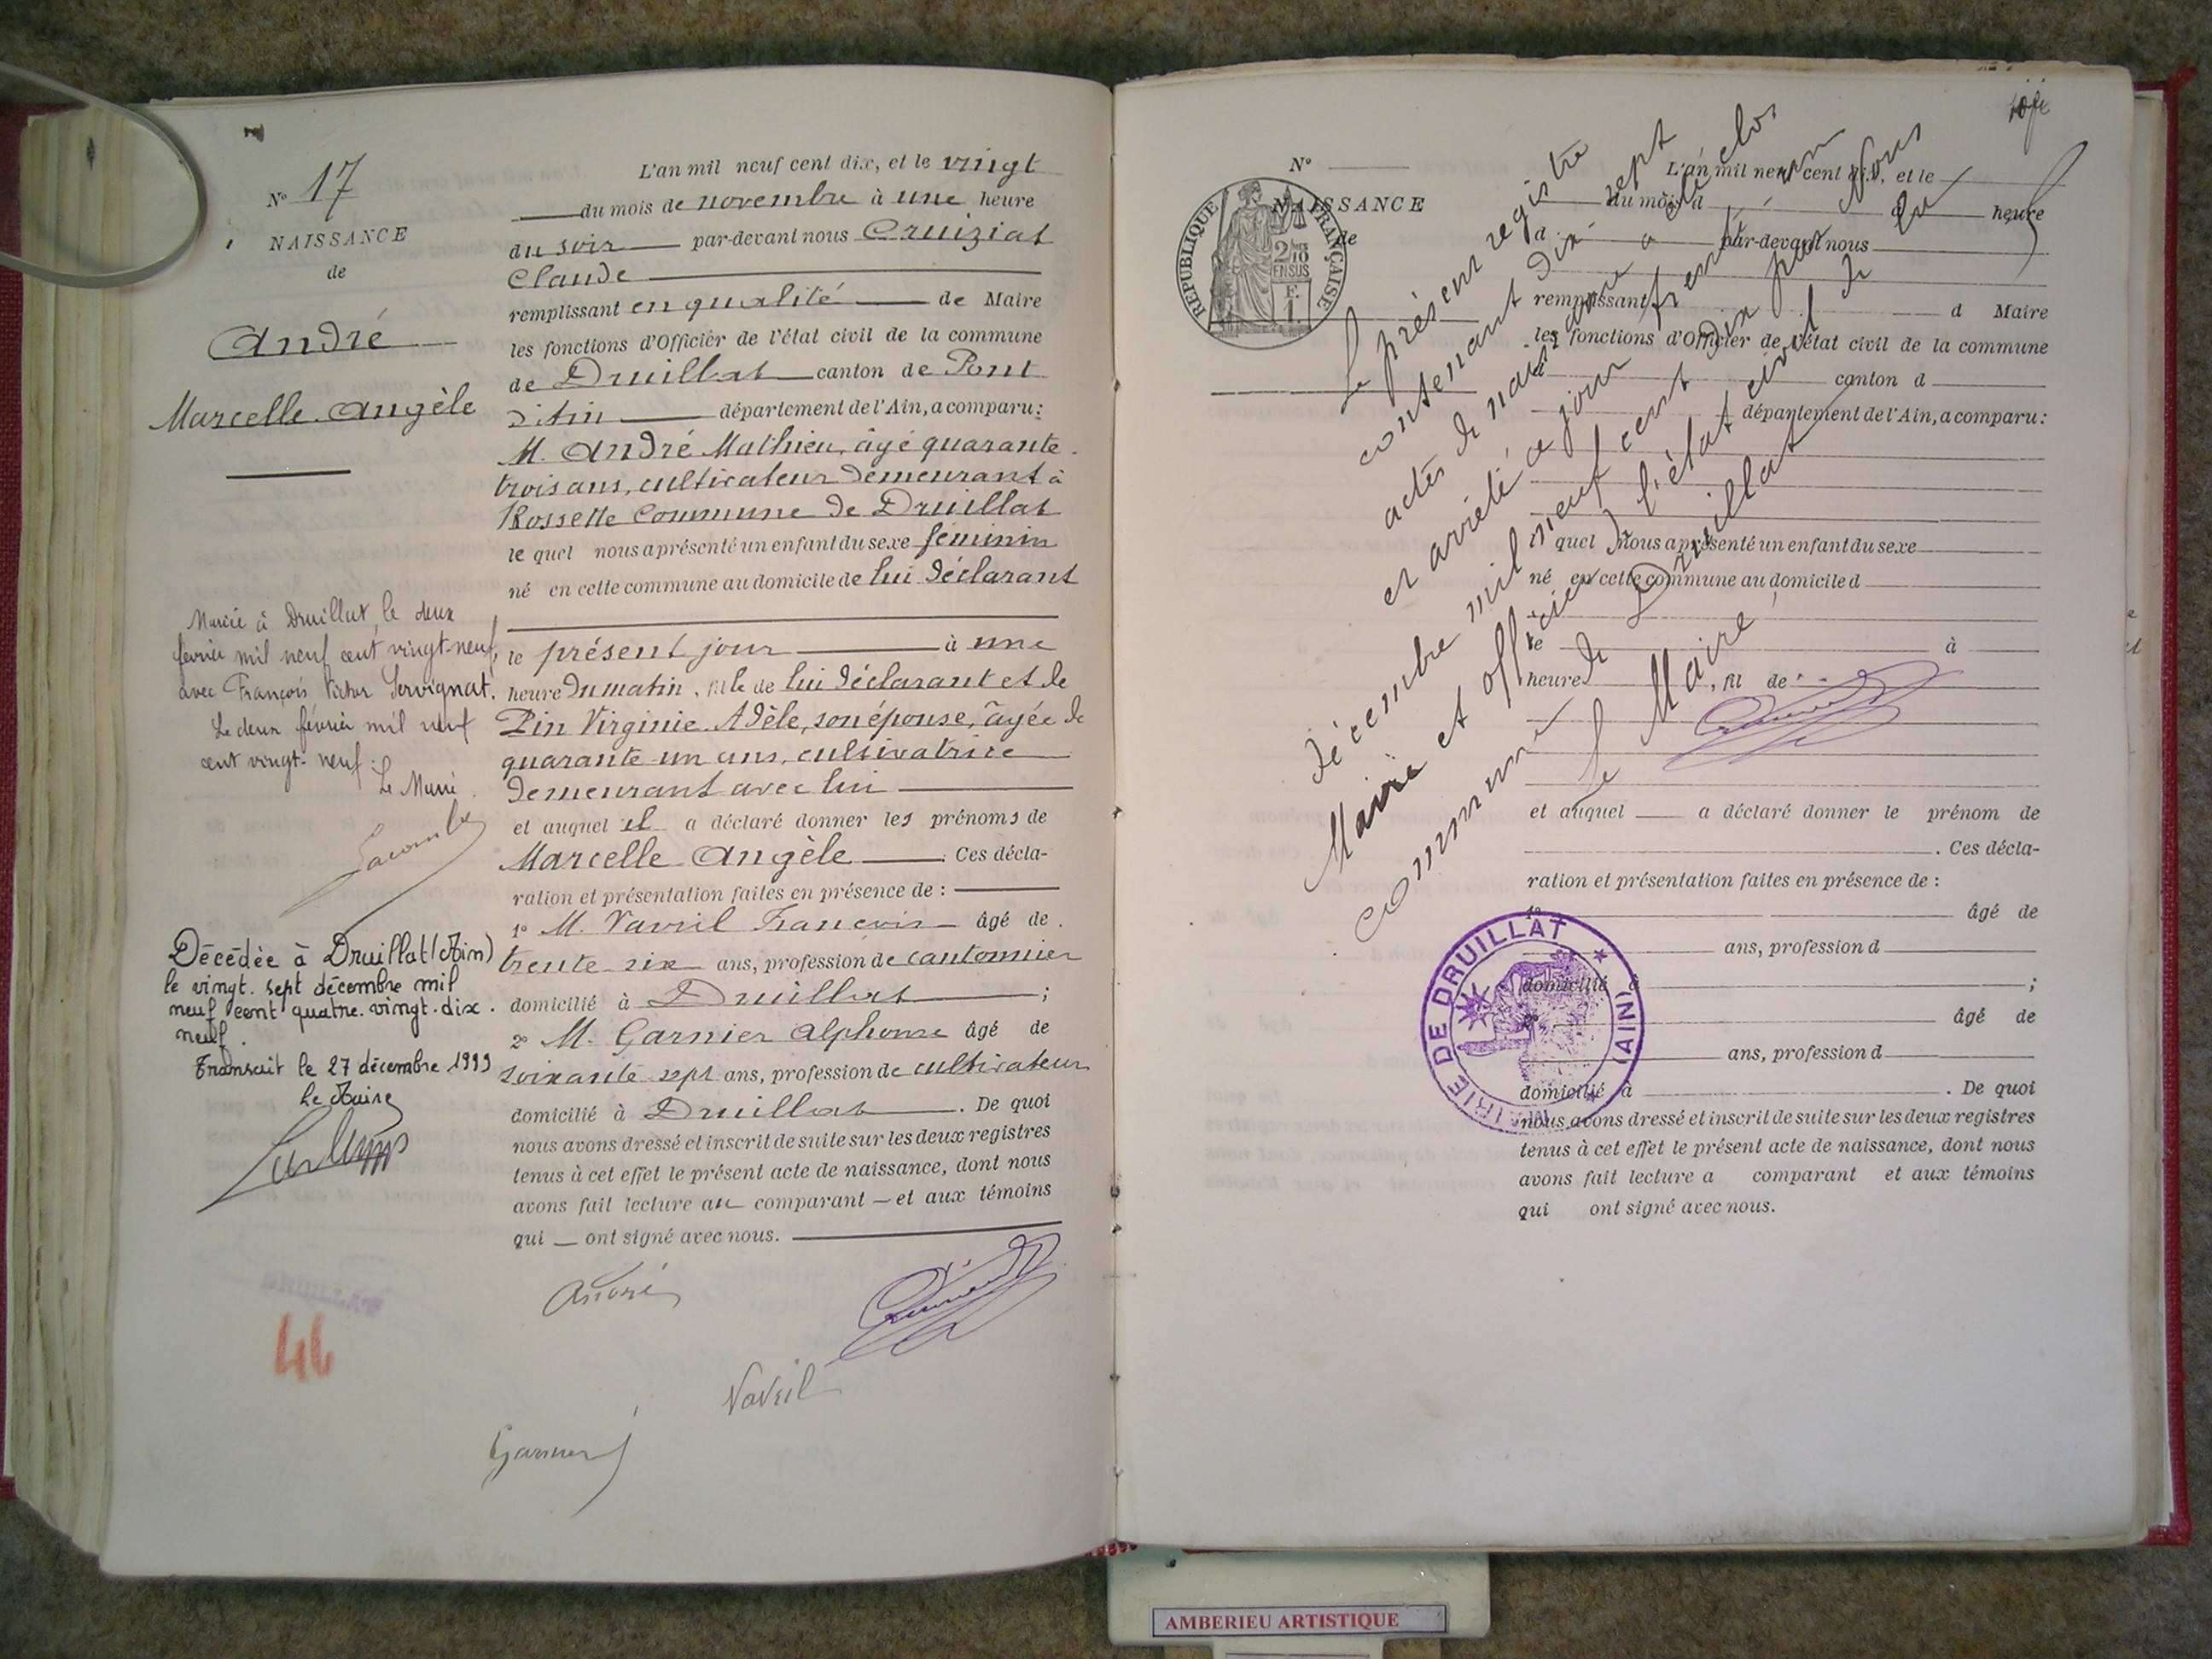 N° 17
NAISSANCE
de
André
Marcelle Angèle
Marié à Druillat, le deux
février mil neuf cent vingt-neuf,
avec François Victor Servignat.
Le deux février mil neuf
cent vingt-neuf.
Le Maire.
Décédée à Druillat (Ain)
le vingt. sept décembre mil
neuf cent quatre. vingt. dix.
neuf.
Transcrit le 27 décembre 1999
Le Maire
46
L'an mil neuf cent dix, et le vingt
du mois de novembre à une heure
du soir par-devant nous Cruiziat
Claude
remplissant en qualité de Maire
les fonctions d'Officier de l'état civil de la commune
de Druillat canton de Pont
d'Ain département de l'Ain, a comparu:
M. André Mathieu, âgé quarante
trois ans, cultivateur demeurant à
Rossette Commune de Druillat
le quel nous a présenté un enfant du sexe féminin
né en cette commune au domicile de lui déclarant
le présent jour à une
heure du matin, fille de lui déclarant et de
Pin Virginie Adèle, son épouse, âgée de
quarante un ans, cultivatrice
demeurant avec lui
et auquel il a déclaré donner les prénoms de
Marcelle Angèle. Ces décla-
ration et présentation faites en présence de :
1° M. Vavril François âgé de
trente six ans, profession de cantonnier
domicilié à Druillat ;
2° M. Garnier Alphonse âgé de
soixante sept ans, profession de cultivateur
domicilié à Druillat. De quoi
nous avons dressé et inscrit de suite sur les deux registres
tenus à cet effet le présent acte de naissance, dont nous
avons fait lecture au comparant — et aux témoins
qui — ont signé avec nous.
André
Vavril
Garnier
N°
NAISSANCE
de
RÉPUBLIQUE FRANÇAISE
2/10
EN SUS
F.
1.
L'an mil neuf cent dix, et le
du mois d à heure
d par-devant nous
remplissant d Maire
les fonctions d'Officier de l'état civil de la commune
d canton d
département de l'Ain, a comparu:
l quel nous a présenté un enfant du sexe
né en cette commune au domicile d
le à
heure , fil de
et auquel a déclaré donner le prénom de
. Ces décla-
ration et présentation faites en présence de :
1° âgé de
ans, profession d
domicilié à ;
2° âgé de
ans, profession d
domicilié à . De quoi
nous avons dressé et inscrit de suite sur les deux registres
tenus à cet effet le présent acte de naissance, dont nous
avons fait lecture a comparant et aux témoins
qui ont signé avec nous.
Le présent registre
contenant dix sept
actes de naissance a été clos
et arrêté ce jour trente un
décembre mil neuf cent dix par Nous
Maire et officier de l'état civil de la
commune de Druillat
Le Maire,
MAIRIE DE DRUILLAT
(AIN)
AMBERIEU ARTISTIQUE